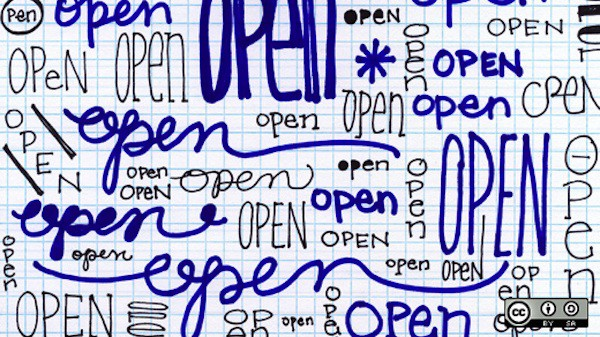 Pen
open
OPEN
OPEN
open
OPEN
OPeN
open
OPEN
open
open
OPEN
open
open
OPEN
OPEN
open
open
open
OPEN
open
open
open
OPEN
open
OPEN
OPEN
open
open
open
open
OPEN
open
OPEN
OPEN
open
open
open
open
cc BY SA